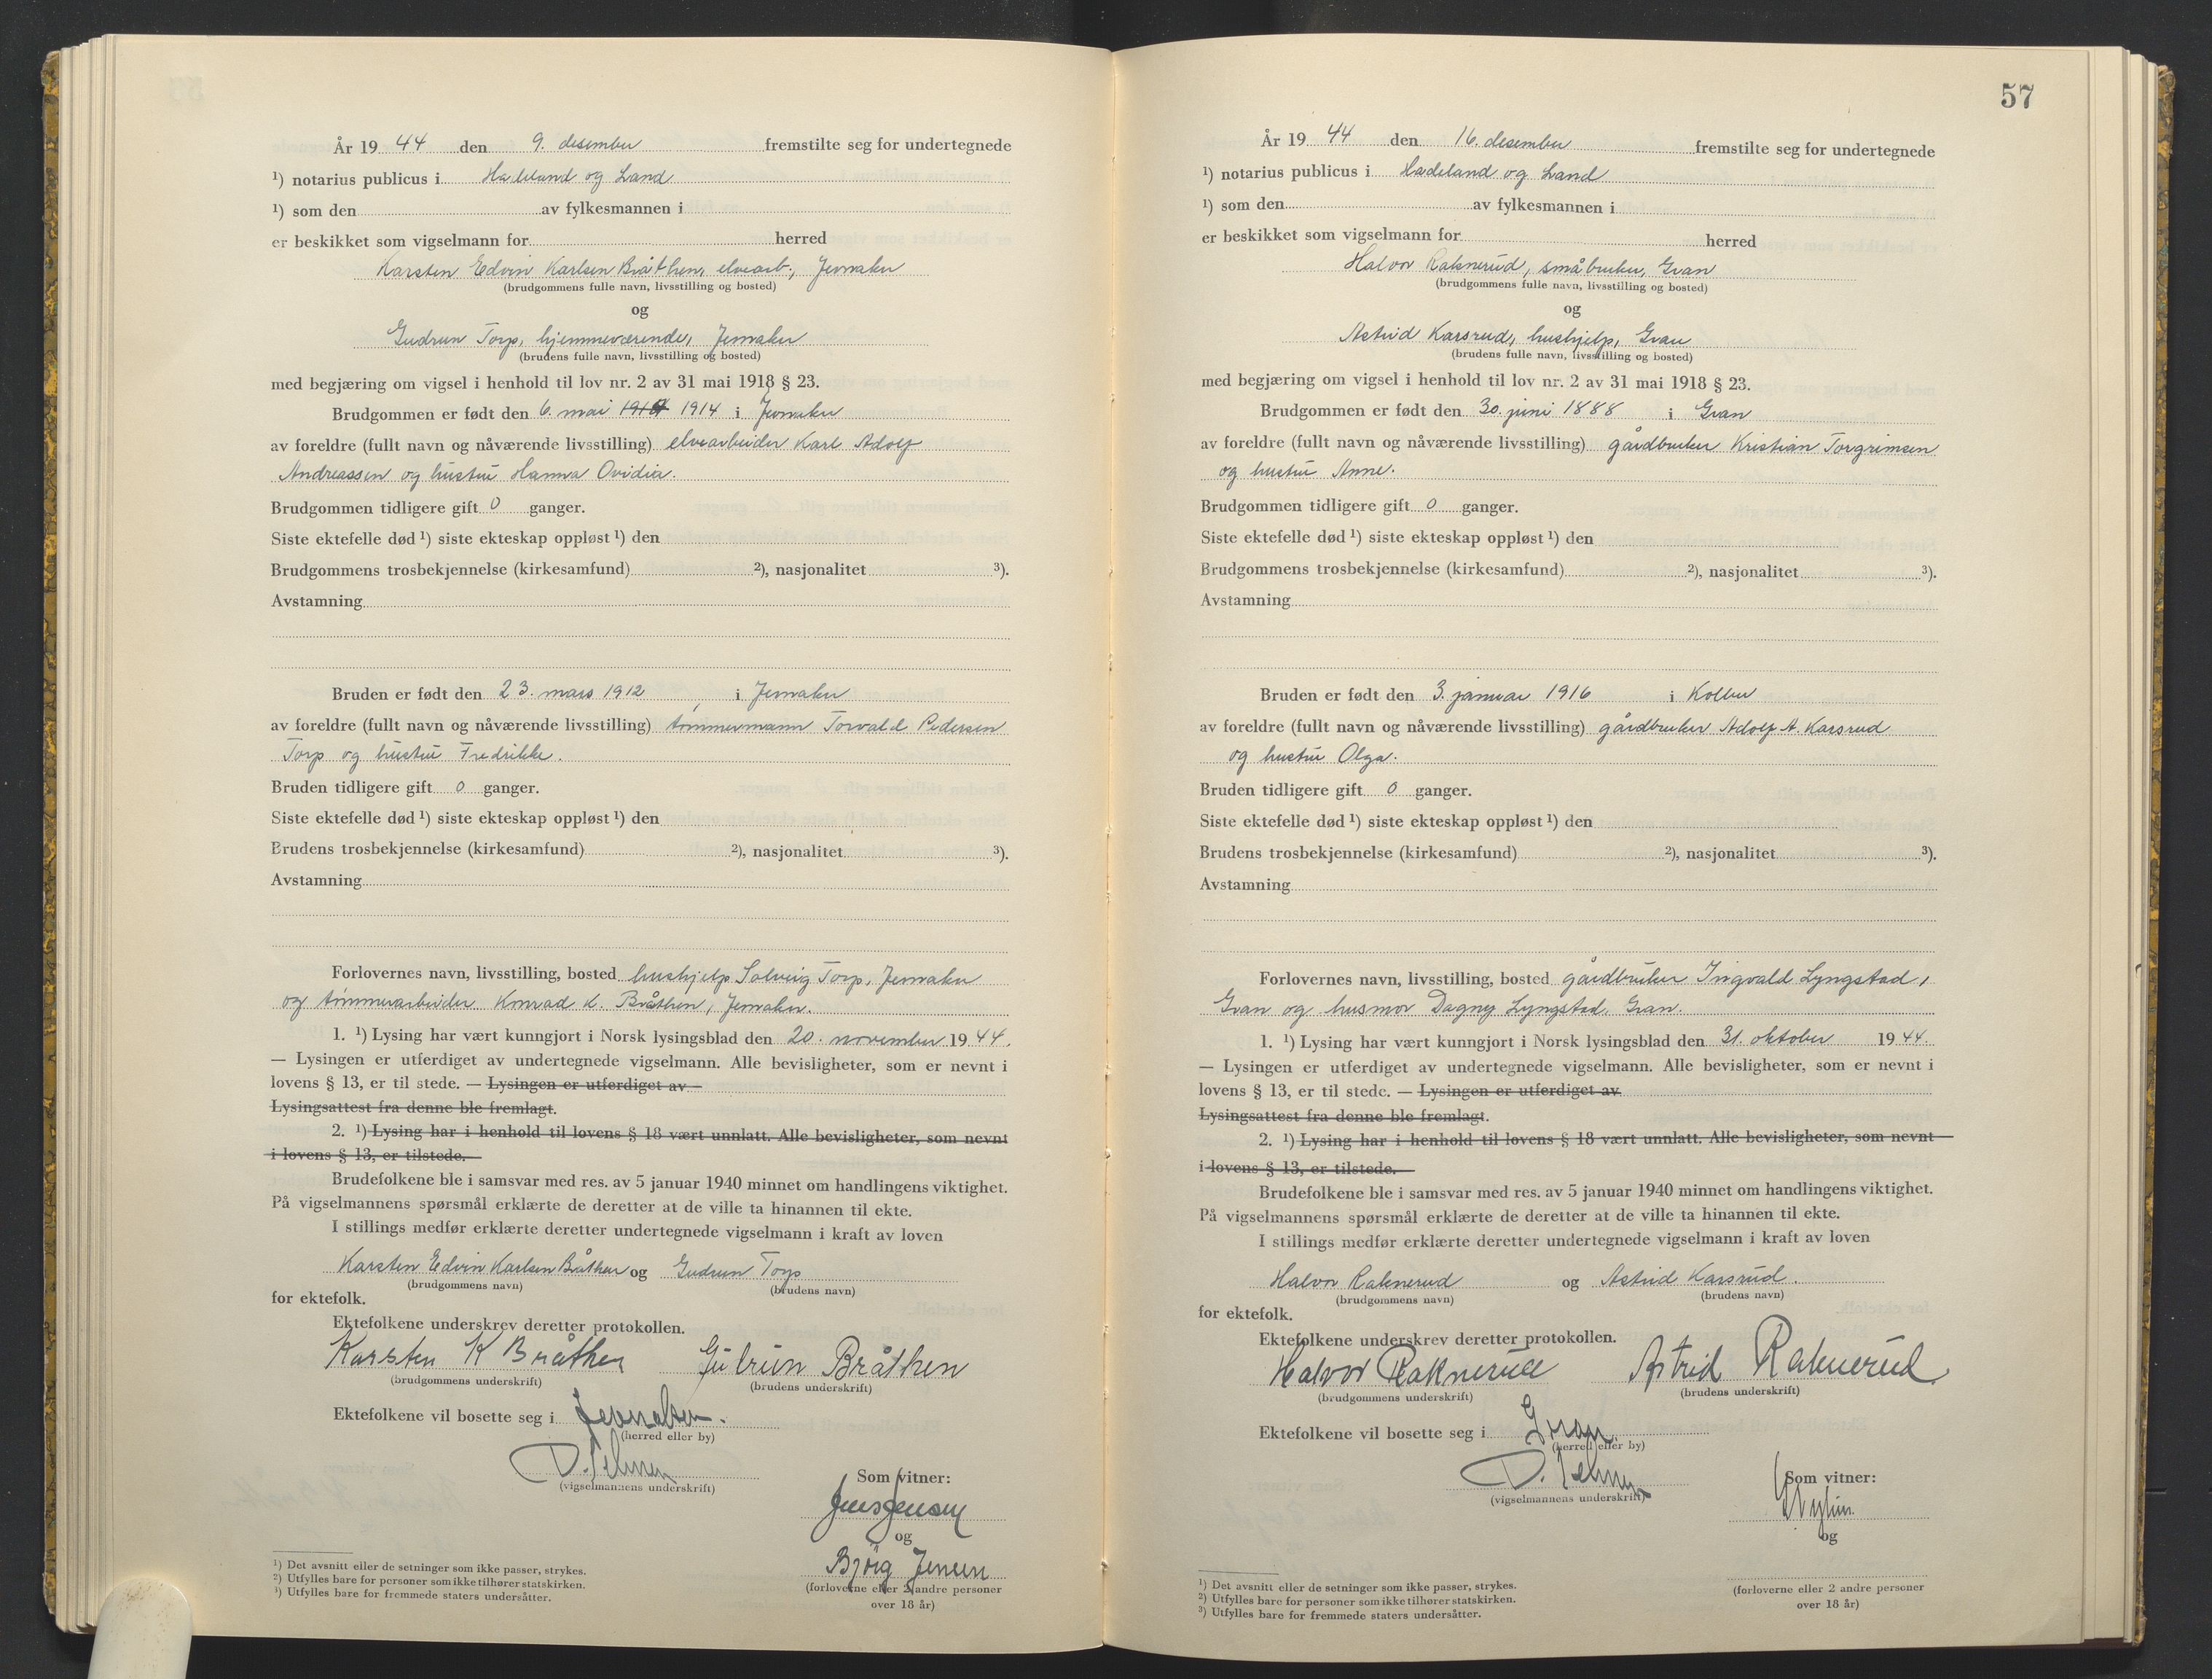 År 19 44 den 9. desember fremstilte seg for undertegnede
¹) notarius publicus i Hadeland og Land
¹) som den av fylkesmannen i
er beskikket som vigselmann for herred
Karsten Edvin Karlsen Bråthen, elvearb., Jevnaker
(brudgommens fulle navn, livsstilling og bosted)
og
Gudrun Torp, hjemmeværende, Jevnaker
(brudens fulle navn, livsstilling og bosted)
med begjæring om vigsel i henhold til lov nr. 2 av 31 mai 1918 § 23.
Brudgommen er født den 6. mai 1914 i Jevnaker
av foreldre (fullt navn og nåværende livsstilling) elvearbeider Karl Adolf
Andreassen og hustru Hanna Ovidia.
Brudgommen tidligere gift 0 ganger.
Siste ektefelle død ¹) siste ekteskap oppløst ¹) den
Brudgommens trosbekjennelse (kirkesamfund) ²), nasjonalitet ³).
Avstamning
Bruden er født den 23. mars 1912 i Jevnaker
av foreldre (fullt navn og nåværende livsstilling) tømmermann Torvald Pedersen
Torp og hustru Fredrikke.
Bruden tidligere gift 0 ganger.
Siste ektefelle død ¹) siste ekteskap oppløst ¹) den
Brudens trosbekjennelse (kirkesamfund) ²), nasjonalitet ³).
Avstamning
Forlovernes navn, livsstilling, bosted hushjelp Solveig Torp, Jevnaker
og tømmerarbeider Konrad K. Bråthen, Jevnaker.
1. ¹) Lysing har vært kunngjort i Norsk lysingsblad den 20. november 19 44.
— Lysingen er utferdiget av undertegnede vigselmann. Alle bevisligheter, som er nevnt i
lovens § 13, er til stede. — Lysingen er utferdiget av
Lysingsattest fra denne ble fremlagt.
2. ¹) Lysing har i henhold til lovens § 18 vært unnlatt. Alle bevisligheter, som nevnt
i lovens § 13, er tilstede.
Brudefolkene ble i samsvar med res. av 5 januar 1940 minnet om handlingens viktighet.
På vigselmannens spørsmål erklærte de deretter at de ville ta hinannen til ekte.
I stillings medfør erklærte deretter undertegnede vigselmann i kraft av loven
Karsten Edvin Karlsen Bråthen og Gudrun Torp
(brudgommens navn) (brudens navn)
for ektefolk.
Ektefolkene underskrev deretter protokollen.
Karsten K Bråthen Gudrun Bråthen
(brudgommens underskrift) (brudens underskrift)
Ektefolkene vil bosette seg i Jevnaker.
(herred eller by)
(vigselmannens underskrift)
Som vitner:
Jens Jensen
og
Bjørg Jensen
(forloverne eller 2 andre personer
over 18 år)
¹) Det avsnitt eller de setninger som ikke passer, strykes.
²) Utfylles bare for personer som ikke tilhører statskirken.
³) Utfylles bare for fremmede staters undersåtter.
57
År 19 44 den 16. desember fremstilte seg for undertegnede
¹) notarius publicus i Hadeland og Land
¹) som den av fylkesmannen i
er beskikket som vigselmann for herred
Halvor Raknerud, småbruker, Gran
(brudgommens fulle navn, livsstilling og bosted)
og
Astrid Karsrud, hushjelp, Gran
(brudens fulle navn, livsstilling og bosted)
med begjæring om vigsel i henhold til lov nr. 2 av 31 mai 1918 § 23.
Brudgommen er født den 30. juni 1888 i Gran
av foreldre (fullt navn og nåværende livsstilling) gårdbruker Kristian Torgrimsen
og hustru Anne.
Brudgommen tidligere gift 0 ganger.
Siste ektefelle død ¹) siste ekteskap oppløst ¹) den
Brudgommens trosbekjennelse (kirkesamfund) ²), nasjonalitet ³).
Avstamning
Bruden er født den 3. januar 1916 i Kolbu
av foreldre (fullt navn og nåværende livsstilling) gårdbruker Adolf A. Karsrud
og hustru Olga.
Bruden tidligere gift 0 ganger.
Siste ektefelle død ¹) siste ekteskap oppløst ¹) den
Brudens trosbekjennelse (kirkesamfund) ²), nasjonalitet ³).
Avstamning
Forlovernes navn, livsstilling, bosted gårdbruker Ingvald Lyngstad,
Gran og husmor Dagny Lyngstad, Gran.
1. ¹) Lysing har vært kunngjort i Norsk lysingsblad den 31. oktober 19 44.
— Lysingen er utferdiget av undertegnede vigselmann. Alle bevisligheter, som er nevnt i
lovens § 13, er til stede. — Lysingen er utferdiget av
Lysingsattest fra denne ble fremlagt.
2. ¹) Lysing har i henhold til lovens § 18 vært unnlatt. Alle bevisligheter, som nevnt
i lovens § 13, er tilstede.
Brudefolkene ble i samsvar med res. av 5 januar 1940 minnet om handlingens viktighet.
På vigselmannens spørsmål erklærte de deretter at de ville ta hinannen til ekte.
I stillings medfør erklærte deretter undertegnede vigselmann i kraft av loven
Halvor Raknerud og Astrid Karsrud.
(brudgommens navn) (brudens navn)
for ektefolk.
Ektefolkene underskrev deretter protokollen.
Halvor Raknerud Astrid Raknerud
(brudgommens underskrift) (brudens underskrift)
Ektefolkene vil bosette seg i Gran
(herred eller by)
(vigselmannens underskrift)
Som vitner:
og
(forloverne eller 2 andre personer
over 18 år)
¹) Det avsnitt eller de setninger som ikke passer, strykes.
²) Utfylles bare for personer som ikke tilhører statskirken.
³) Utfylles bare for fremmede staters undersåtter.